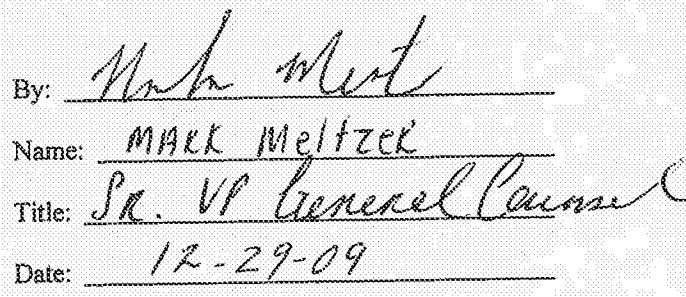 By:
Name: MARK Meltzer
Title: SR. VP General Counsel
Date: 12-29-09